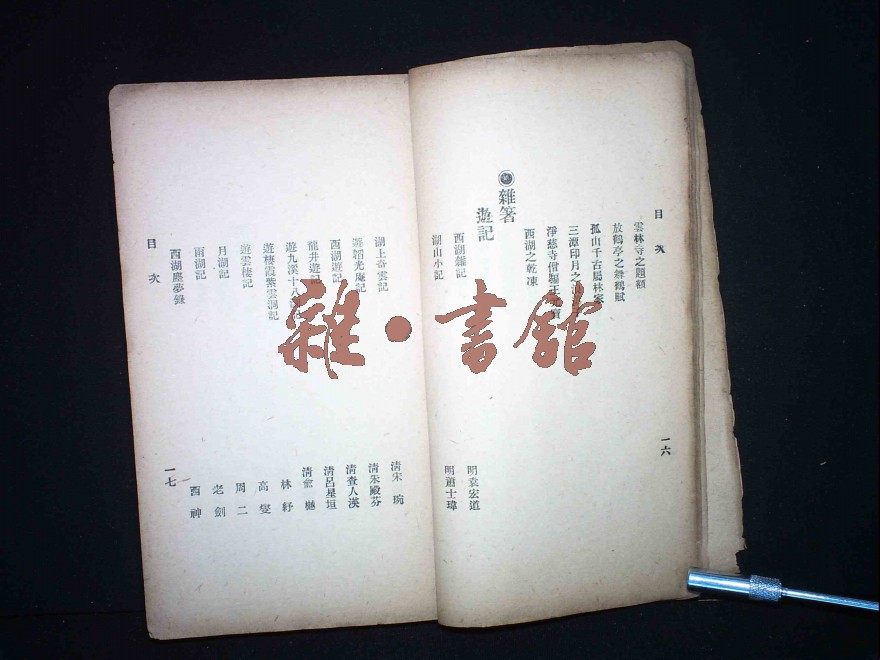 目次
雲林寺之題額
放鶴亭之舞鶴賦
孤山千古屬林家
三潭印月之
淨慈寺僧
西湖之乾凍
雜著
遊記
西湖雜記 明袁宏道
湖山小記 明蕭士瑋
一六
湖上奇雲記 清宋琬
遊韜光庵記 清朱殿芬
西湖遊記 清查人渶
龍井遊記 清呂星垣
遊九溪十八澗記 清俞樾
遊棲霞紫雲洞記 林紓
遊雲棲記 高燮
月湖記 周二
雨湖記 老劍
西湖塵夢錄 酉神
目次
一七
雜•書館